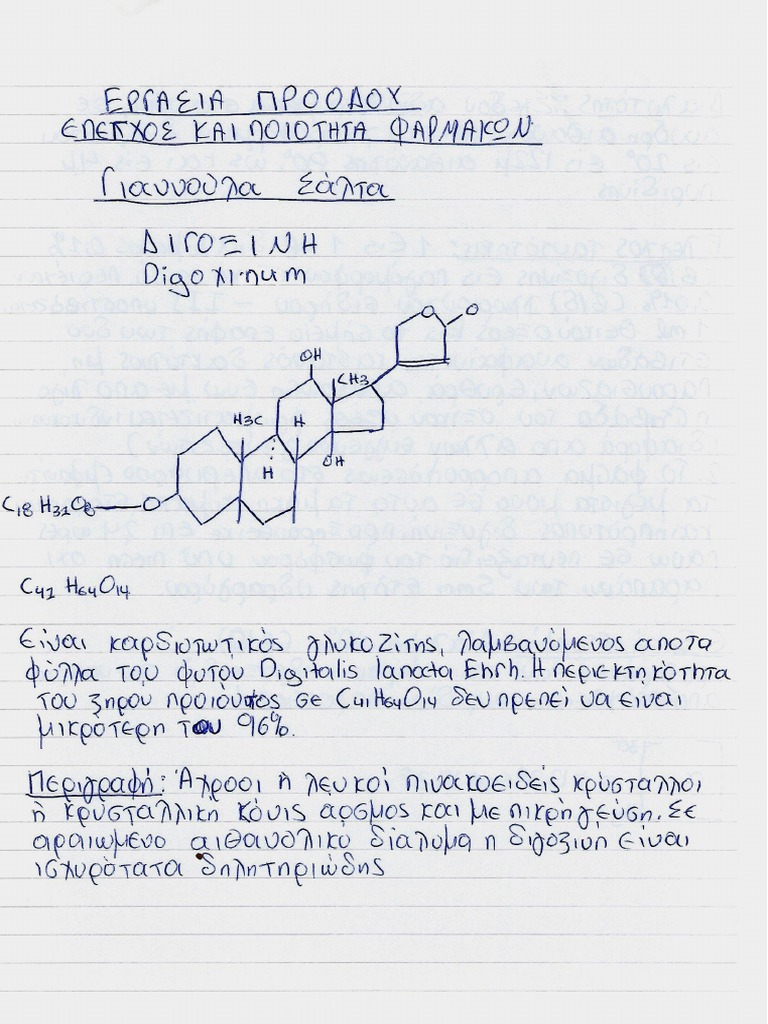 ΕΡΓΑΣΙΑ ΠΡΟΟΔΟΥ
ΕΛΕΓΧΟΣ ΚΑΙ ΠΟΙΟΤΗΤΑ ΦΑΡΜΑΚΩΝ
Γιαννούλα Σάλτα
ΔΙΓΟΞΙΝΗ
Digoxinum
O
O
OH
CH3
H3C
H
H
OH
C18H31O8—O
C41H64O14
Είναι καρδιοτωτικός γλυκοζίτης, λαμβανόμενος απο τα
φύλλα του φυτού Digitalis lanata Ehrh. Η περιεκτηκότητα
του ξηρού προιόντος σε C41H64O14 δεν πρεπεί να ειναι
μικρότερη του 96%.
Περιγραφή: Άχροοι ή λευκοί πινακοειδείς κρύσταλλοι
ή κρυσταλλική κόνις αοσμος και με πικρή γεύση. Σε
αραιωμένο αιθανολικό διάλυμα η διγοξινη είναι
ισχυρότατα δηλητηριώδης